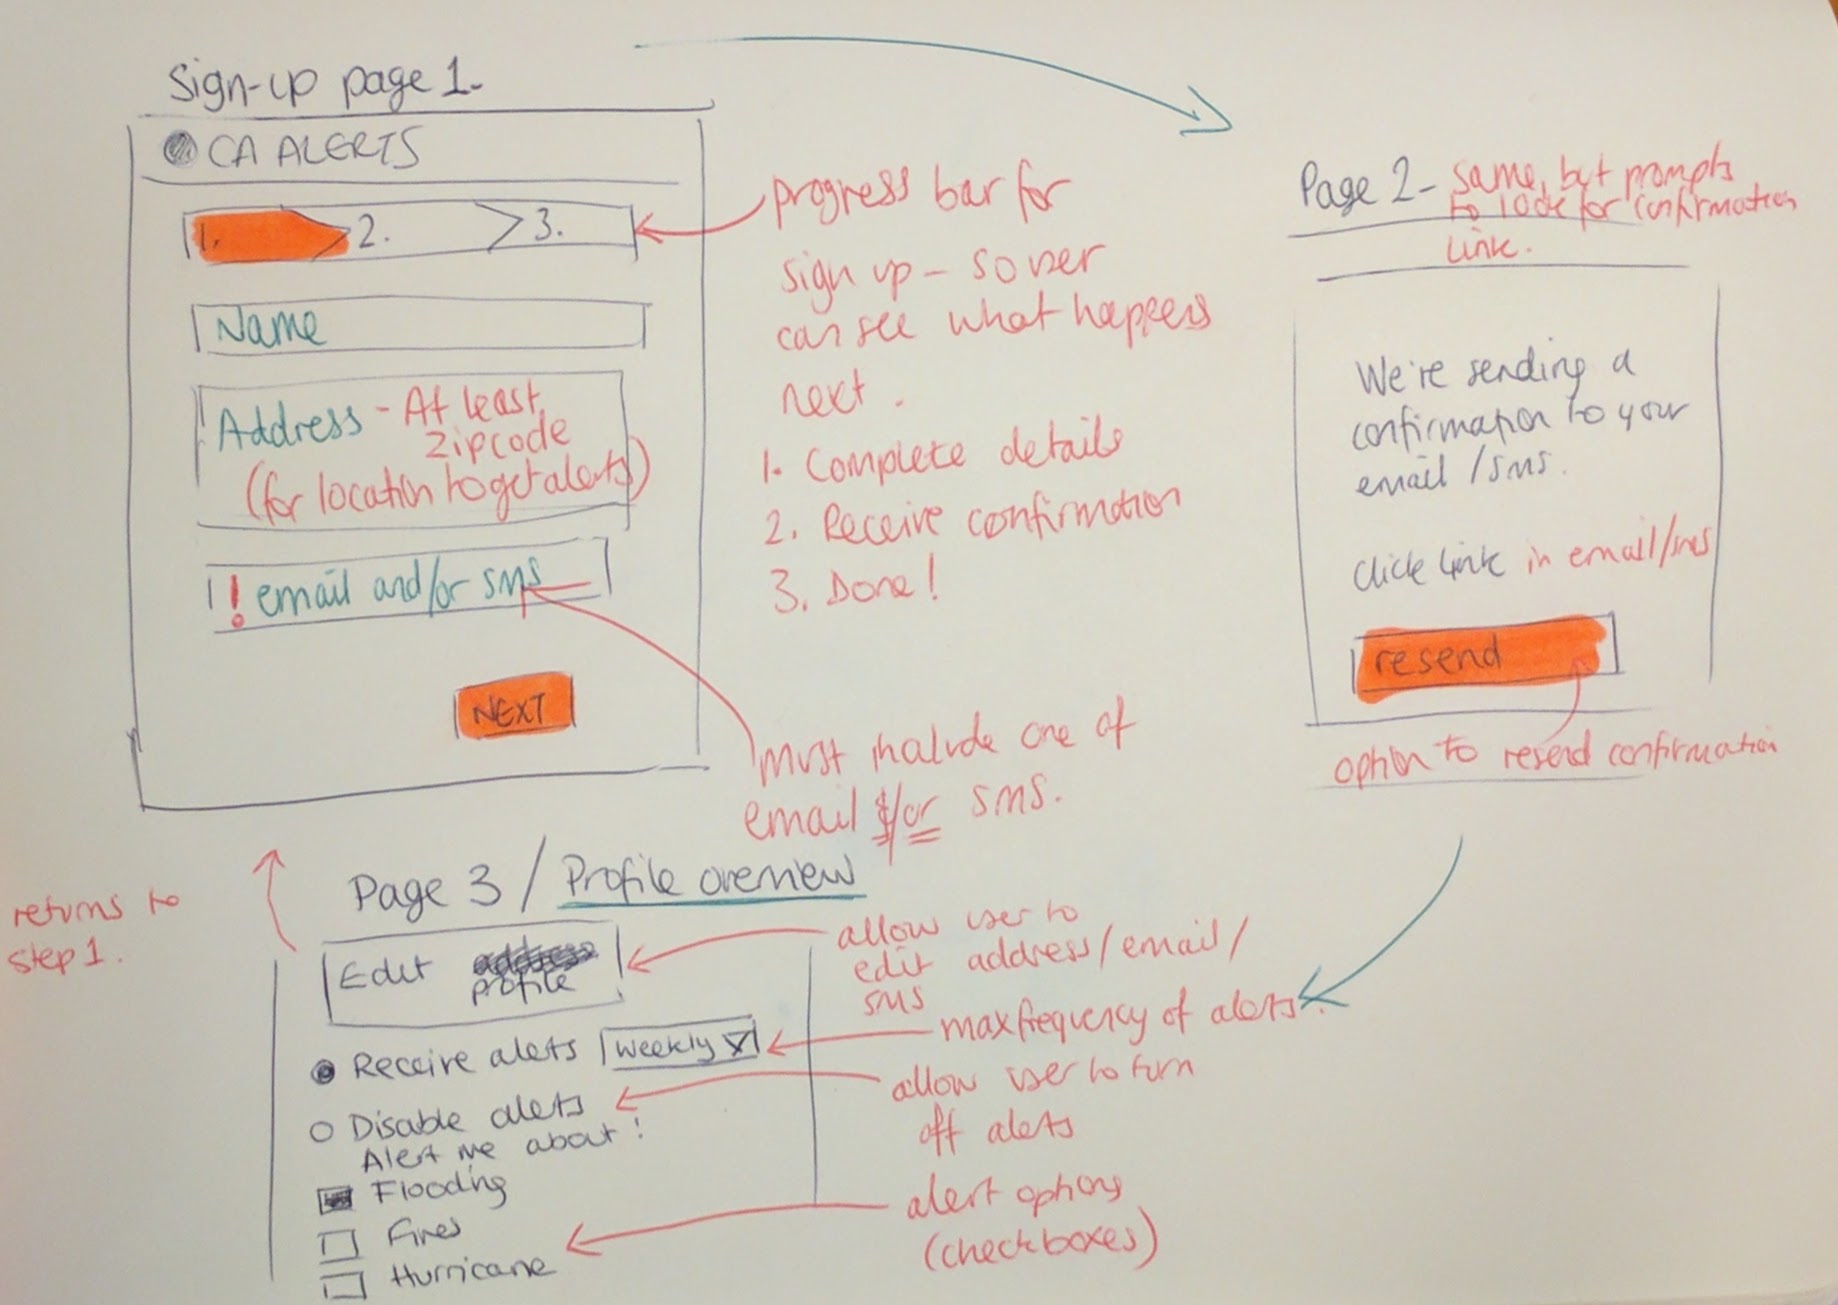 Sign-up page 1-
CA ALERTS
1.
2.
3.
Name
Address - At least
Zipcode
(for location to get alerts)
! email and/or sms
NEXT
progress bar for
sign up - so user
can see what happens
next.
1. Complete details
2. Receive confirmation
3. Done!
must include one of
email &/or sms.
Page 2 - same, but prompts
to look for confirmation
link.
We're sending a
confirmation to your
email / sms.
Click link in email/sms
resend
option to resend confirmation
returns to
step 1.
Page 3 / Profile overview
Edit
profile
allow user to
edit address/email/
sms
Receive alerts
weekly
max frequency of alerts.
Disable alerts
allow user to turn
off alerts
Alert me about:
Flooding
Fires
Hurricane
alert options
(checkboxes)